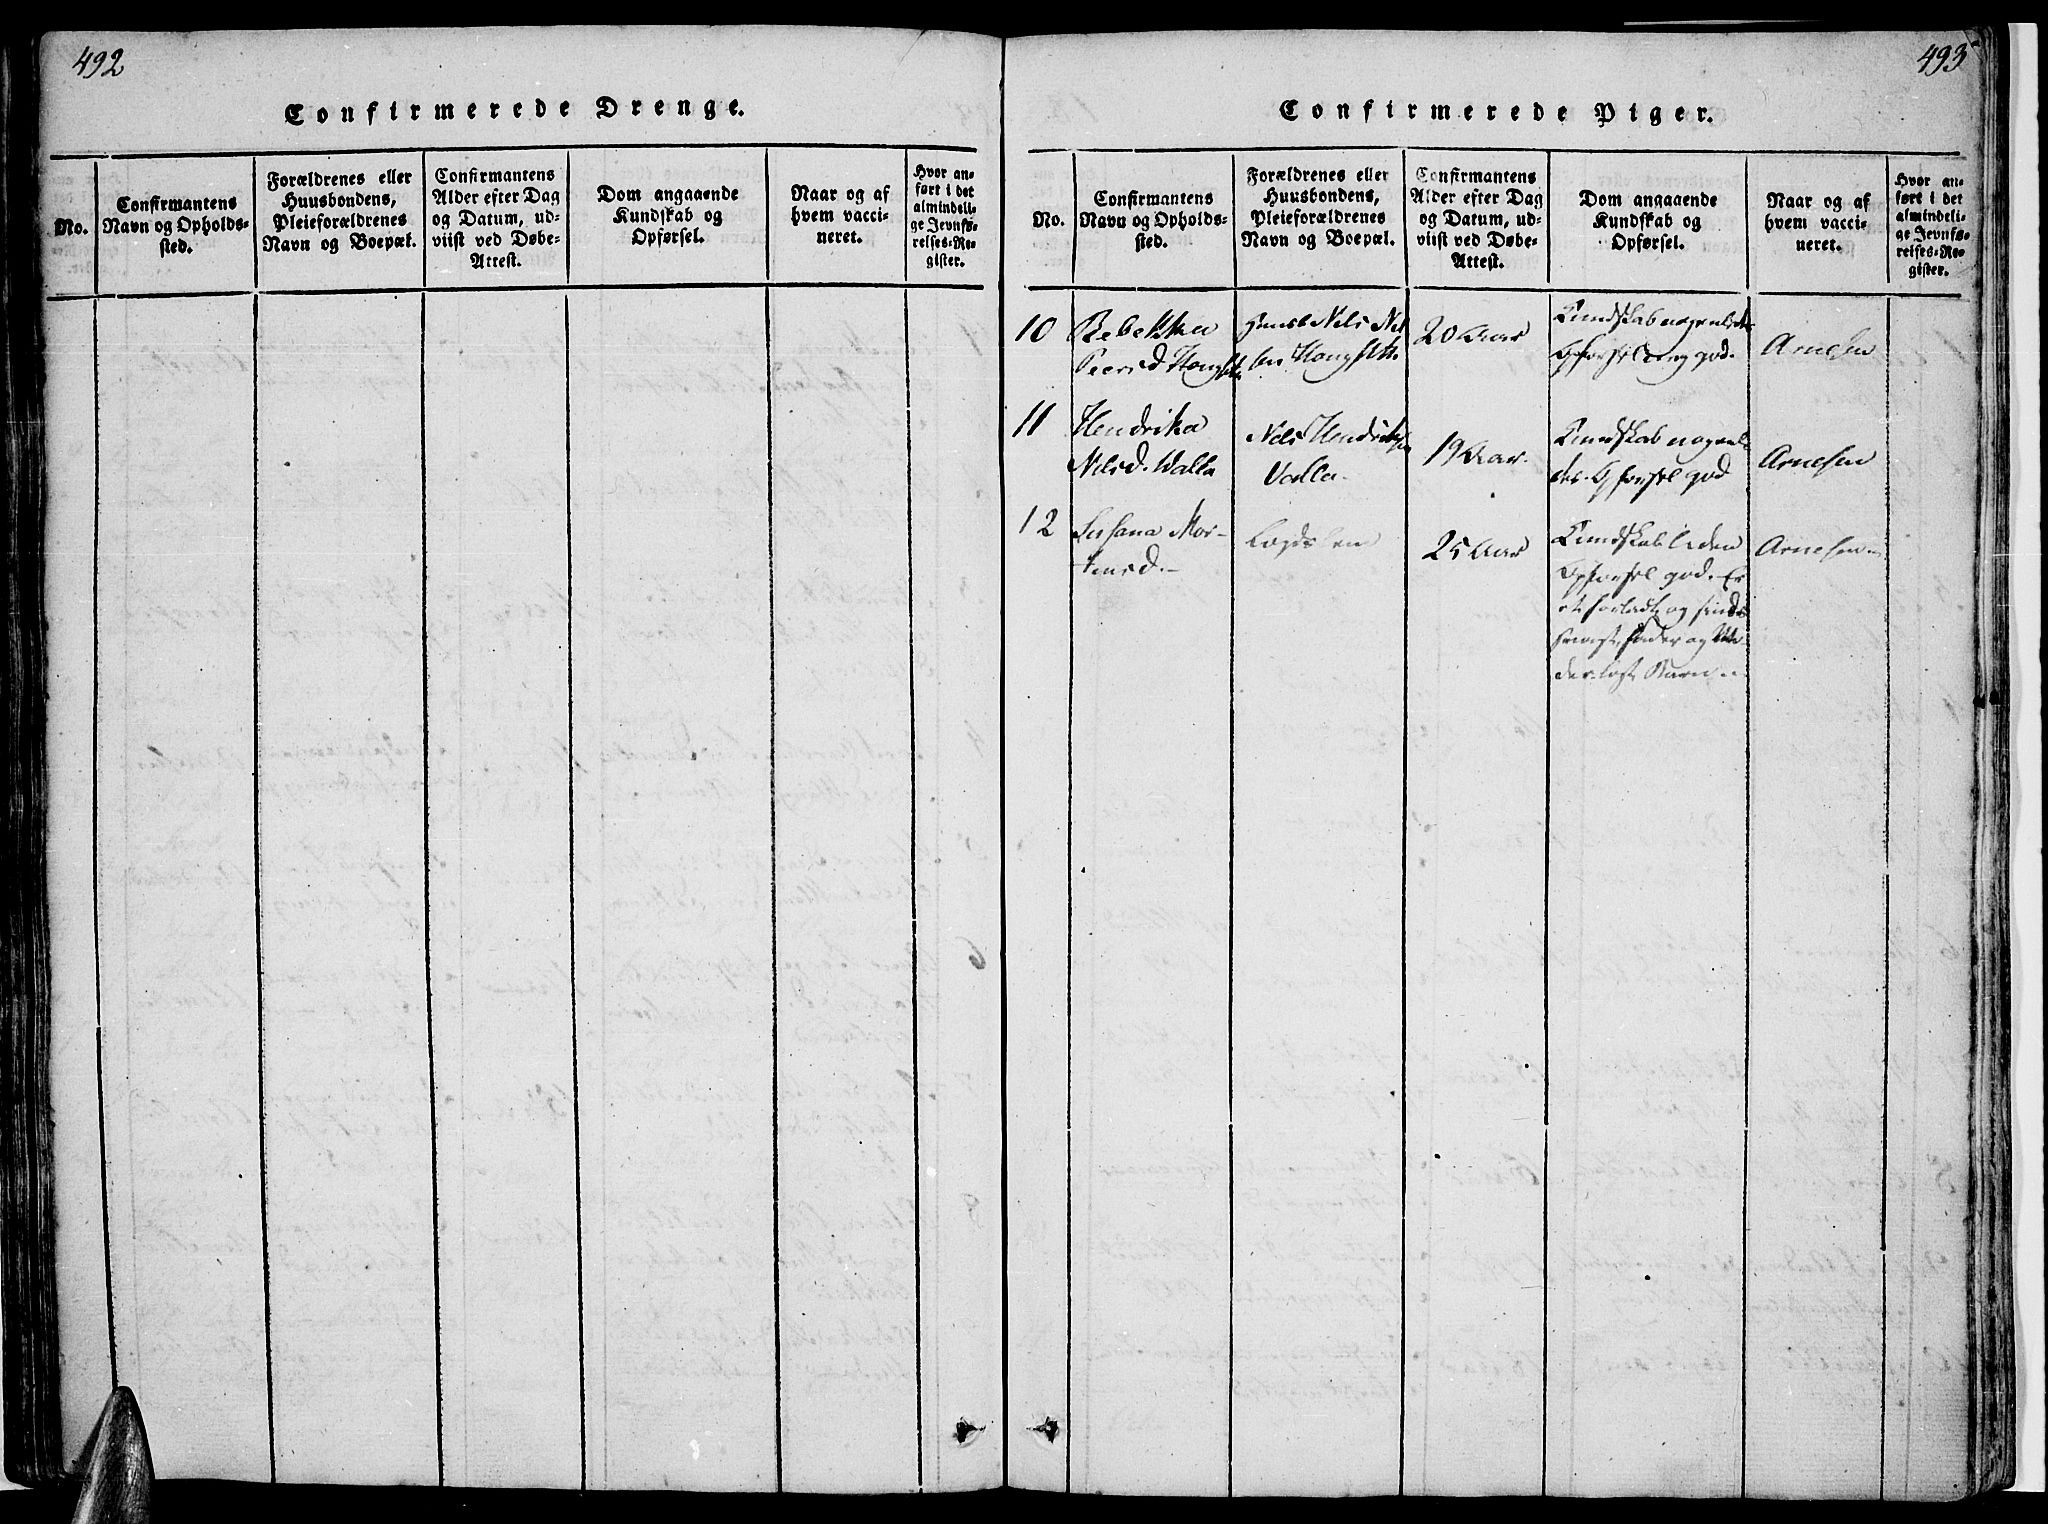 492
Confirmerede Drenge.
No.
Confirmantens
Navn og Opholds-
sted.
Forældrenes eller
Huusbondens,
Pleieforældrenes
Navn og Boepæl.
Confirmantens
Alder efter Dag
og Datum, ud-
viist ved Døbe-
Attest.
Dom angaaende
Kundskab og
Opførsel.
Naar og af
hvem vacci-
neret.
Hvor an-
ført i det
almindeli-
ge Jevnfø-
relses-Re-
gister.
493
Confirmerede Piger.
No.
Confirmantens
Navn og Opholds-
sted.
Forældrenes eller
Huusbondens,
Pleieforældrenes
Navn og Boepæl.
Confirmantens
Alder efter Dag
og Datum, ud-
viist ved Døbe-
Attest.
Dom angaaende
Kundskab og
Opførsel.
Naar og af
hvem vacci-
neret.
Hvor an-
ført i det
almindeli-
ge Jevnfø-
relses-Re-
gister.
10
Rebekka
Peersd
Nils Nil
sen
20 Aar
Kundskab nogenledes
Opførsel god.
Arnesen
11
Hendrika
Nilsd. Walla
Nils Hendriksen
Valla.
19 Aar.
Kundskab nogenle
des. Opførsel god
Arnesen
12
Susana Mor-
tensd.
Logdslem
25 Aar
Kundskab liden
Opførsel god. Er
et forladt og
fader og Mo
derløst Barn
Arnesen